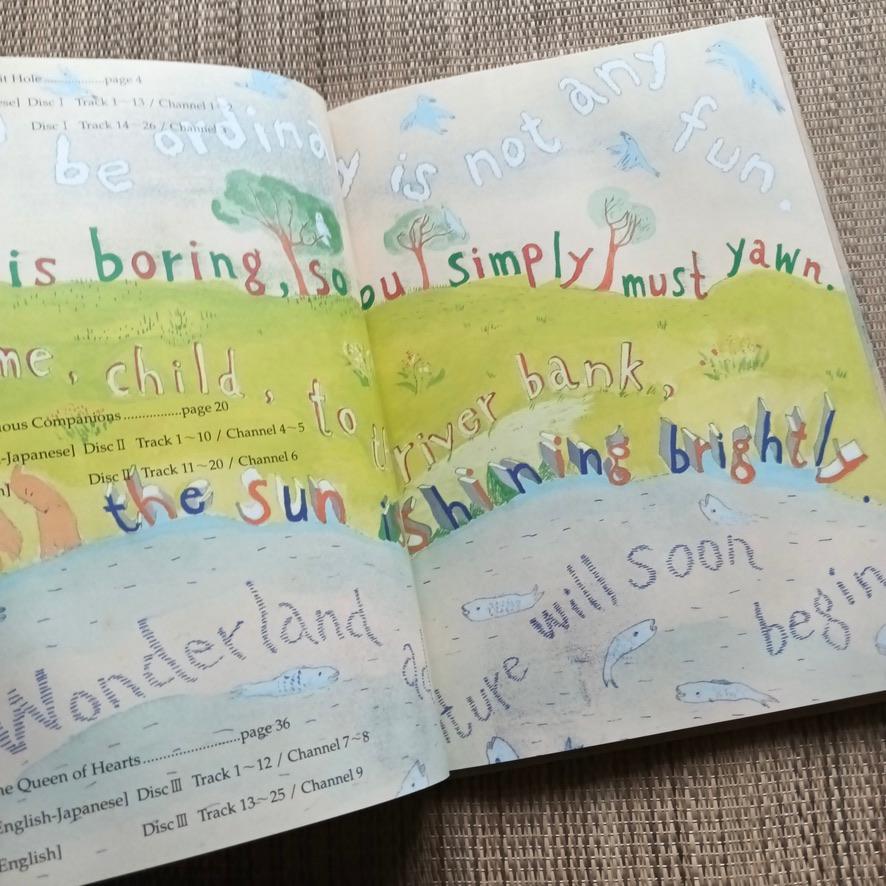 it Hole..................page 4
ese] Disc I Track 1~13 / Channel 1~2
Disc I Track 14~26 / Channel
be ordina y is not any fun.
is boring, so ou simply must yawn.
me, child, to river bank,
ious Companions ...............page 20
-Japanese] Disc II Track 1~10 / Channel 4~5
Disc II Track 11~20 / Channel 6
the sun is shining brightly.
Wonderland ad ture will soon begin
he Queen of Hearts.........................page 36
English-Japanese] Disc III Track 1~12 / Channel 7~8
Disc III Track 13~25 / Channel 9
English]